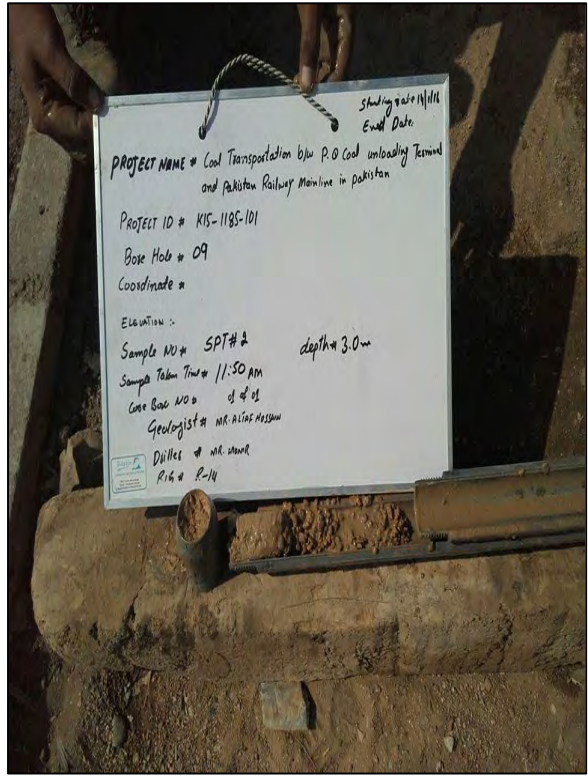 Starting date 19/1/16
End Date.
PROJECT NAME # Coal Transportation b/w P.Q Coal unloading Terminal
and pakistan Railway Mainline in pakistan
PROJECT ID # K15-1185-101
Bore Hole # 09
Coordinate #
ELEVATION :-
Sample NO # SPT # 2 depth # 3.0m
Sample Taken Time # 11:50 AM
Core Box NO # 01 of 01
Geologist # MR. ALTAF HUSSAIN
Driller # MR.
RIG # R-14